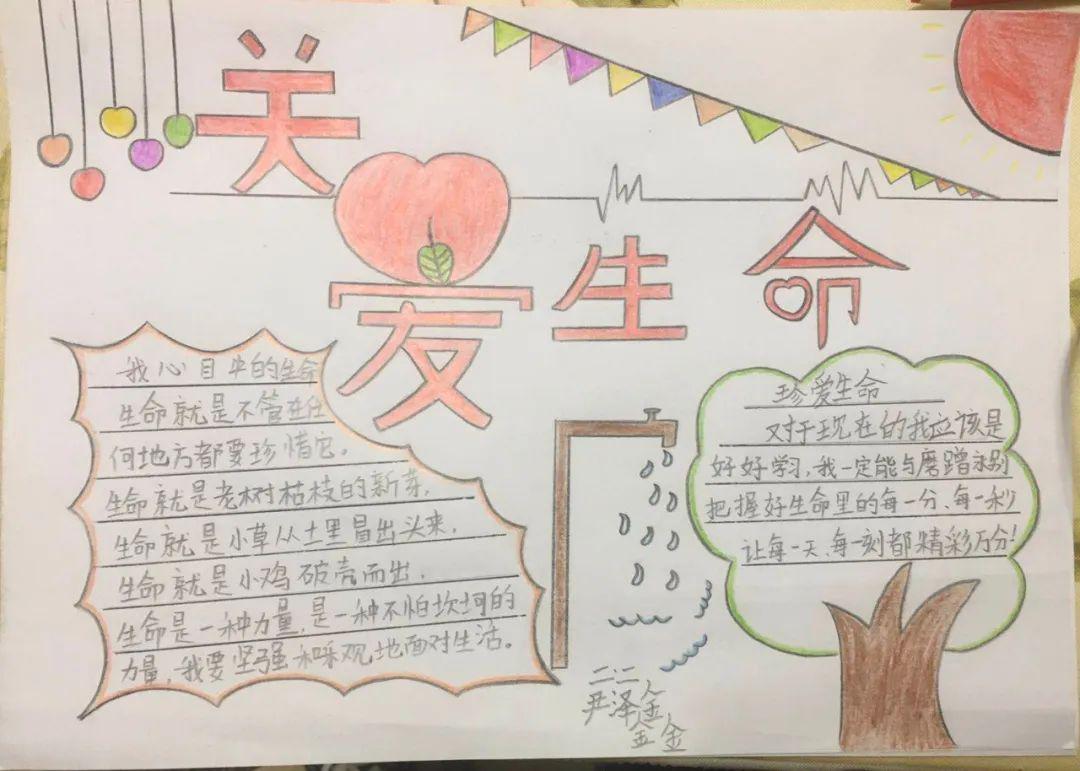 关爱生命
我心目中的生命
生命就是不管在任
何地方都要珍惜它。
生命就是老树枯枝的新芽,
生命就是小草从土里冒出头来,
生命就是小鸡破壳而出,
生命是一种力量,是一种不怕坎坷的
力量,我要坚强和乐观地面对生活。
珍爱生命
对于现在的我应该是
好好学习,我一定能与磨蹭永别
把握好生命里的每一分、每一秒
让每一天、每一刻都精彩万分!
二二
尹泽鑫